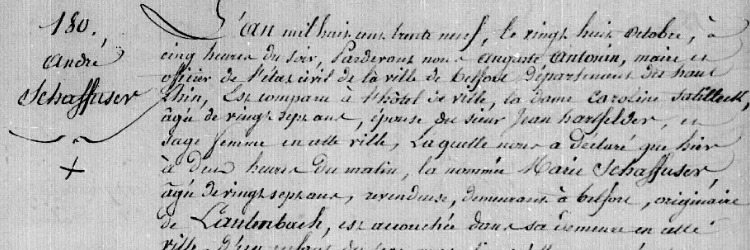 180.
André
Schaffuser
L'an mil huit cent trente neuf, le vingt huit octobre, à
cinq heures du soir, Pardevant nous auguste, antonin, maire et
officier de l'état civil de la ville de Belfort département du haut
Rhin, Est comparu à l'hôtel de ville, la dame Caroline
âgée de vingt sept ans, épouse du sieur Jean hartfelder, et
sage femme en cette ville, Laquelle nous a déclaré que hier
à deux heures du matin, la nommée Marie Schaffuser
âgée de vingt sept ans, revendeuse, demeurant à belfort, originaire
de Lautenbach, est accouchée dans sa demeure en cette
ville d'un enfant du sexe